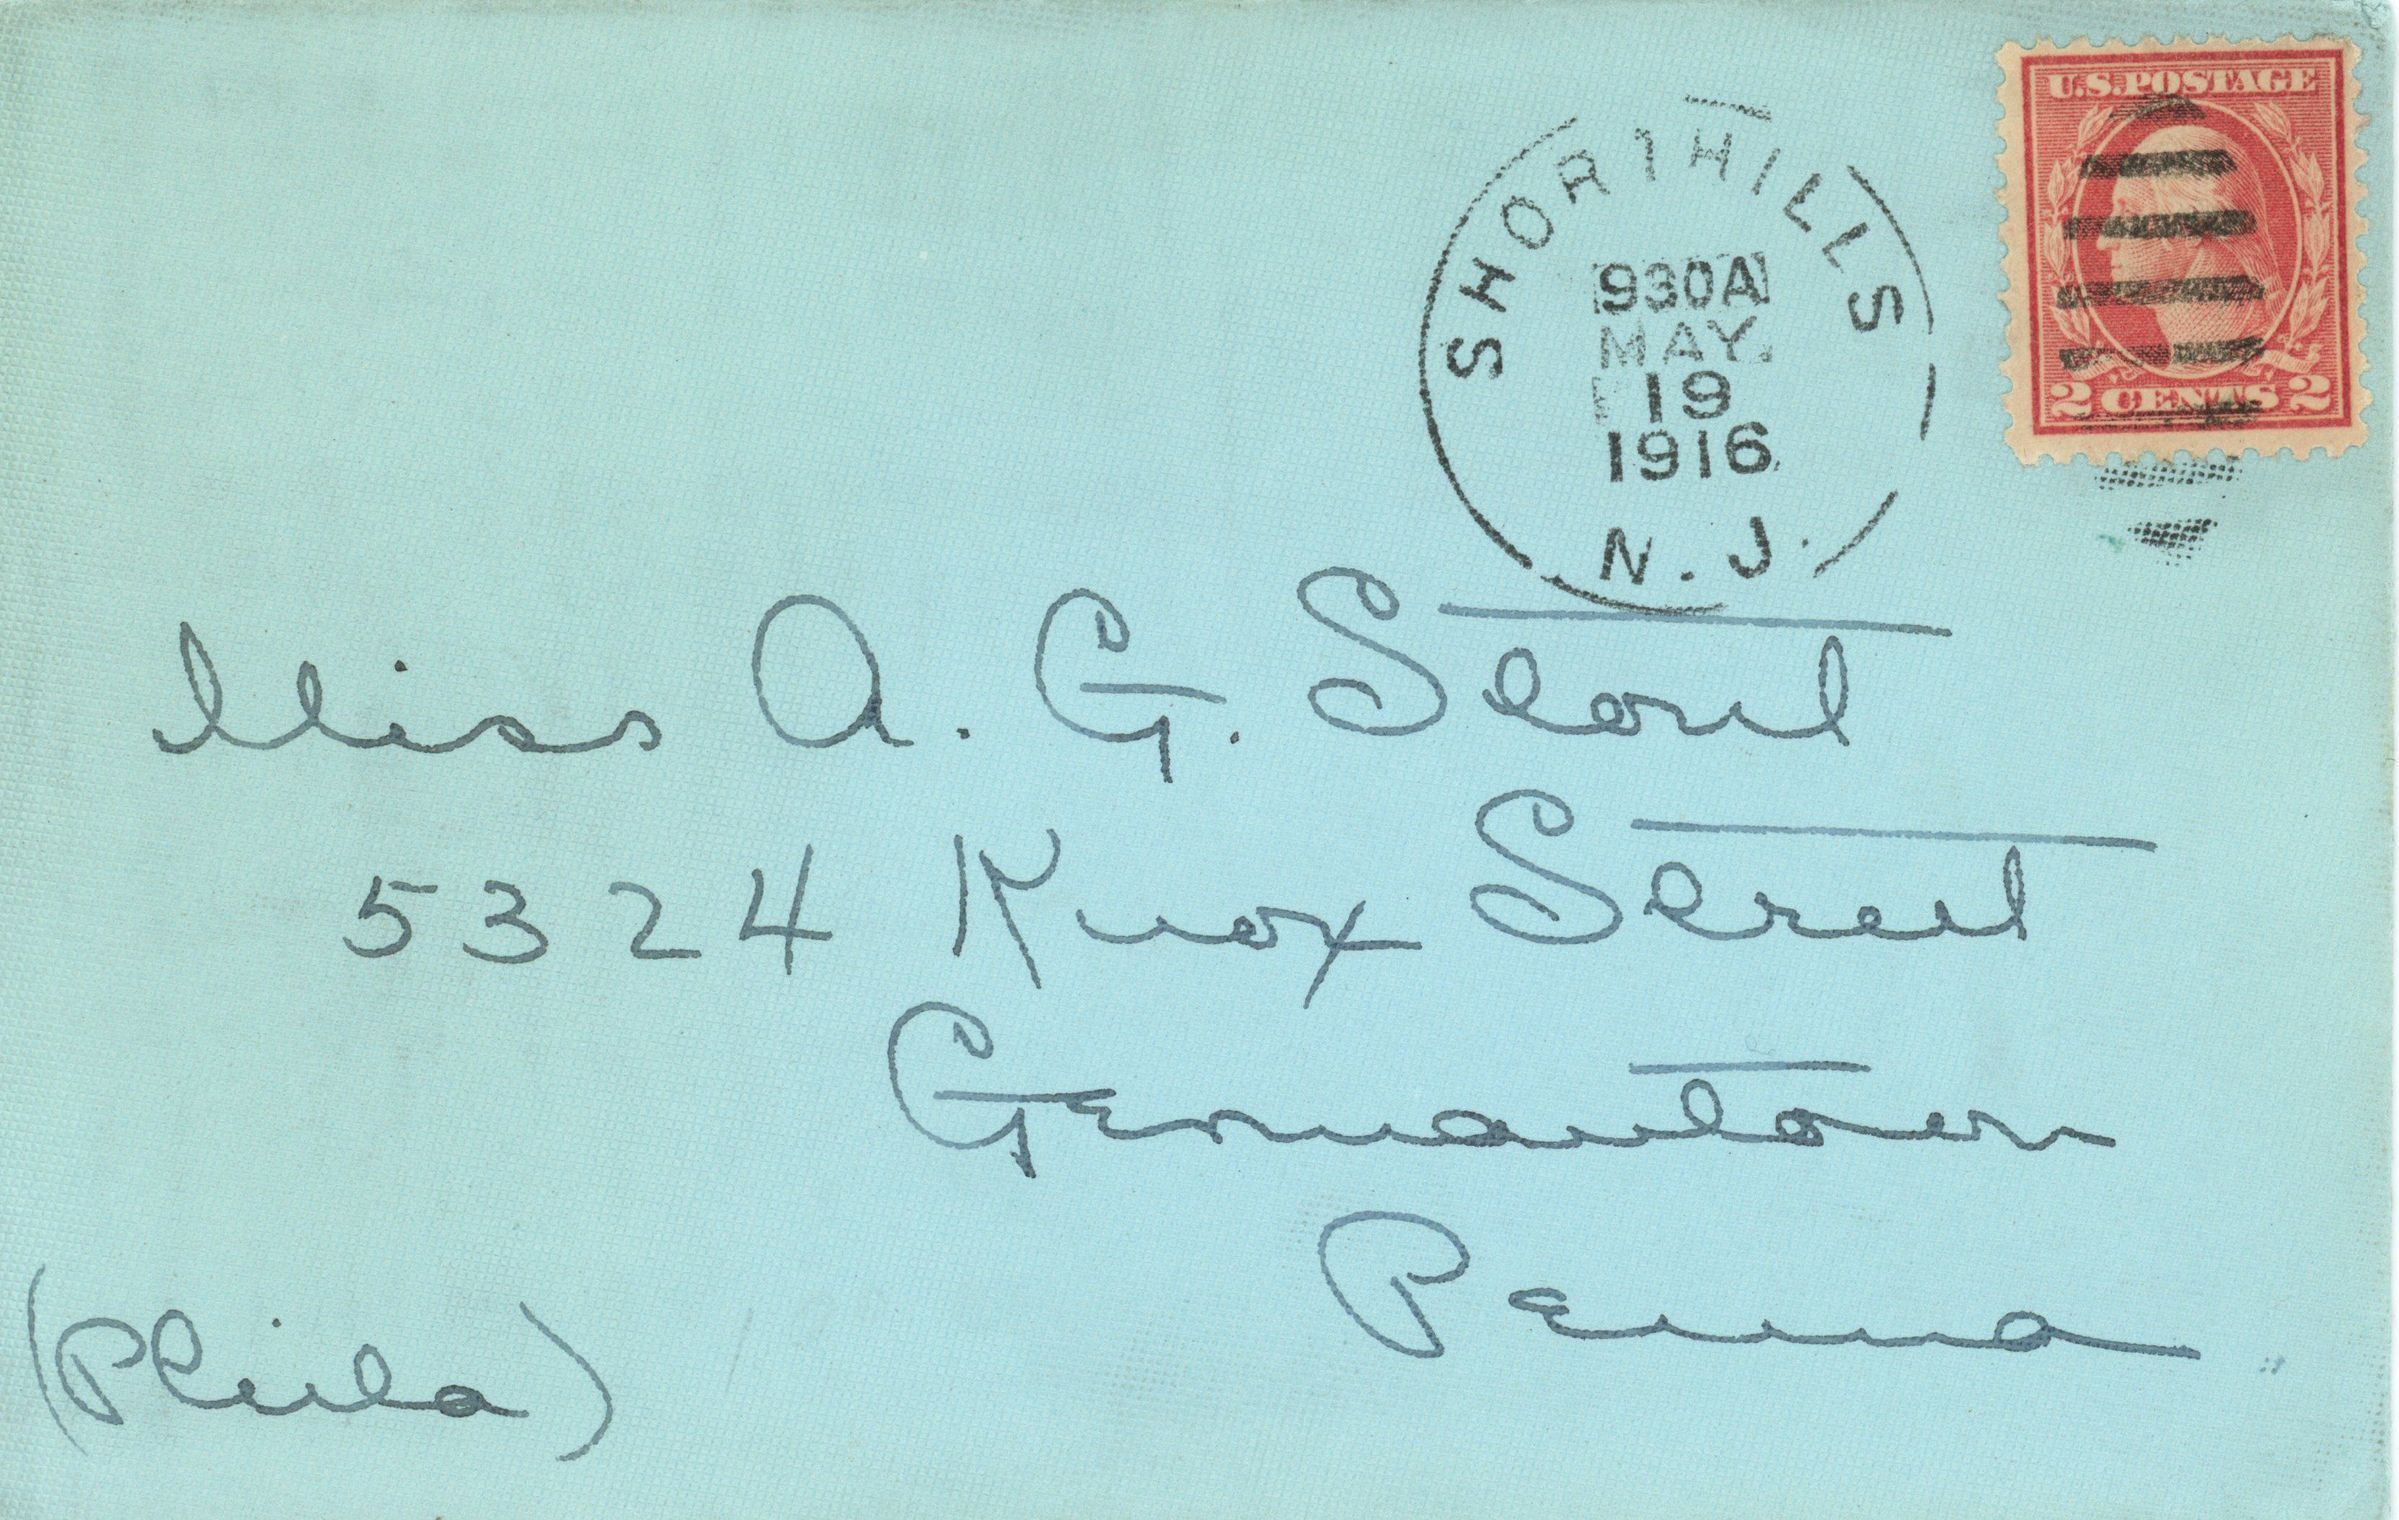 U.S. POSTAGE
2 CENTS 2
SHORT HILLS
930A
MAY.
19
1916
N.J.
Miss A. G. Stout
5324 Knox Street
Germantown
Penna
(Phila)